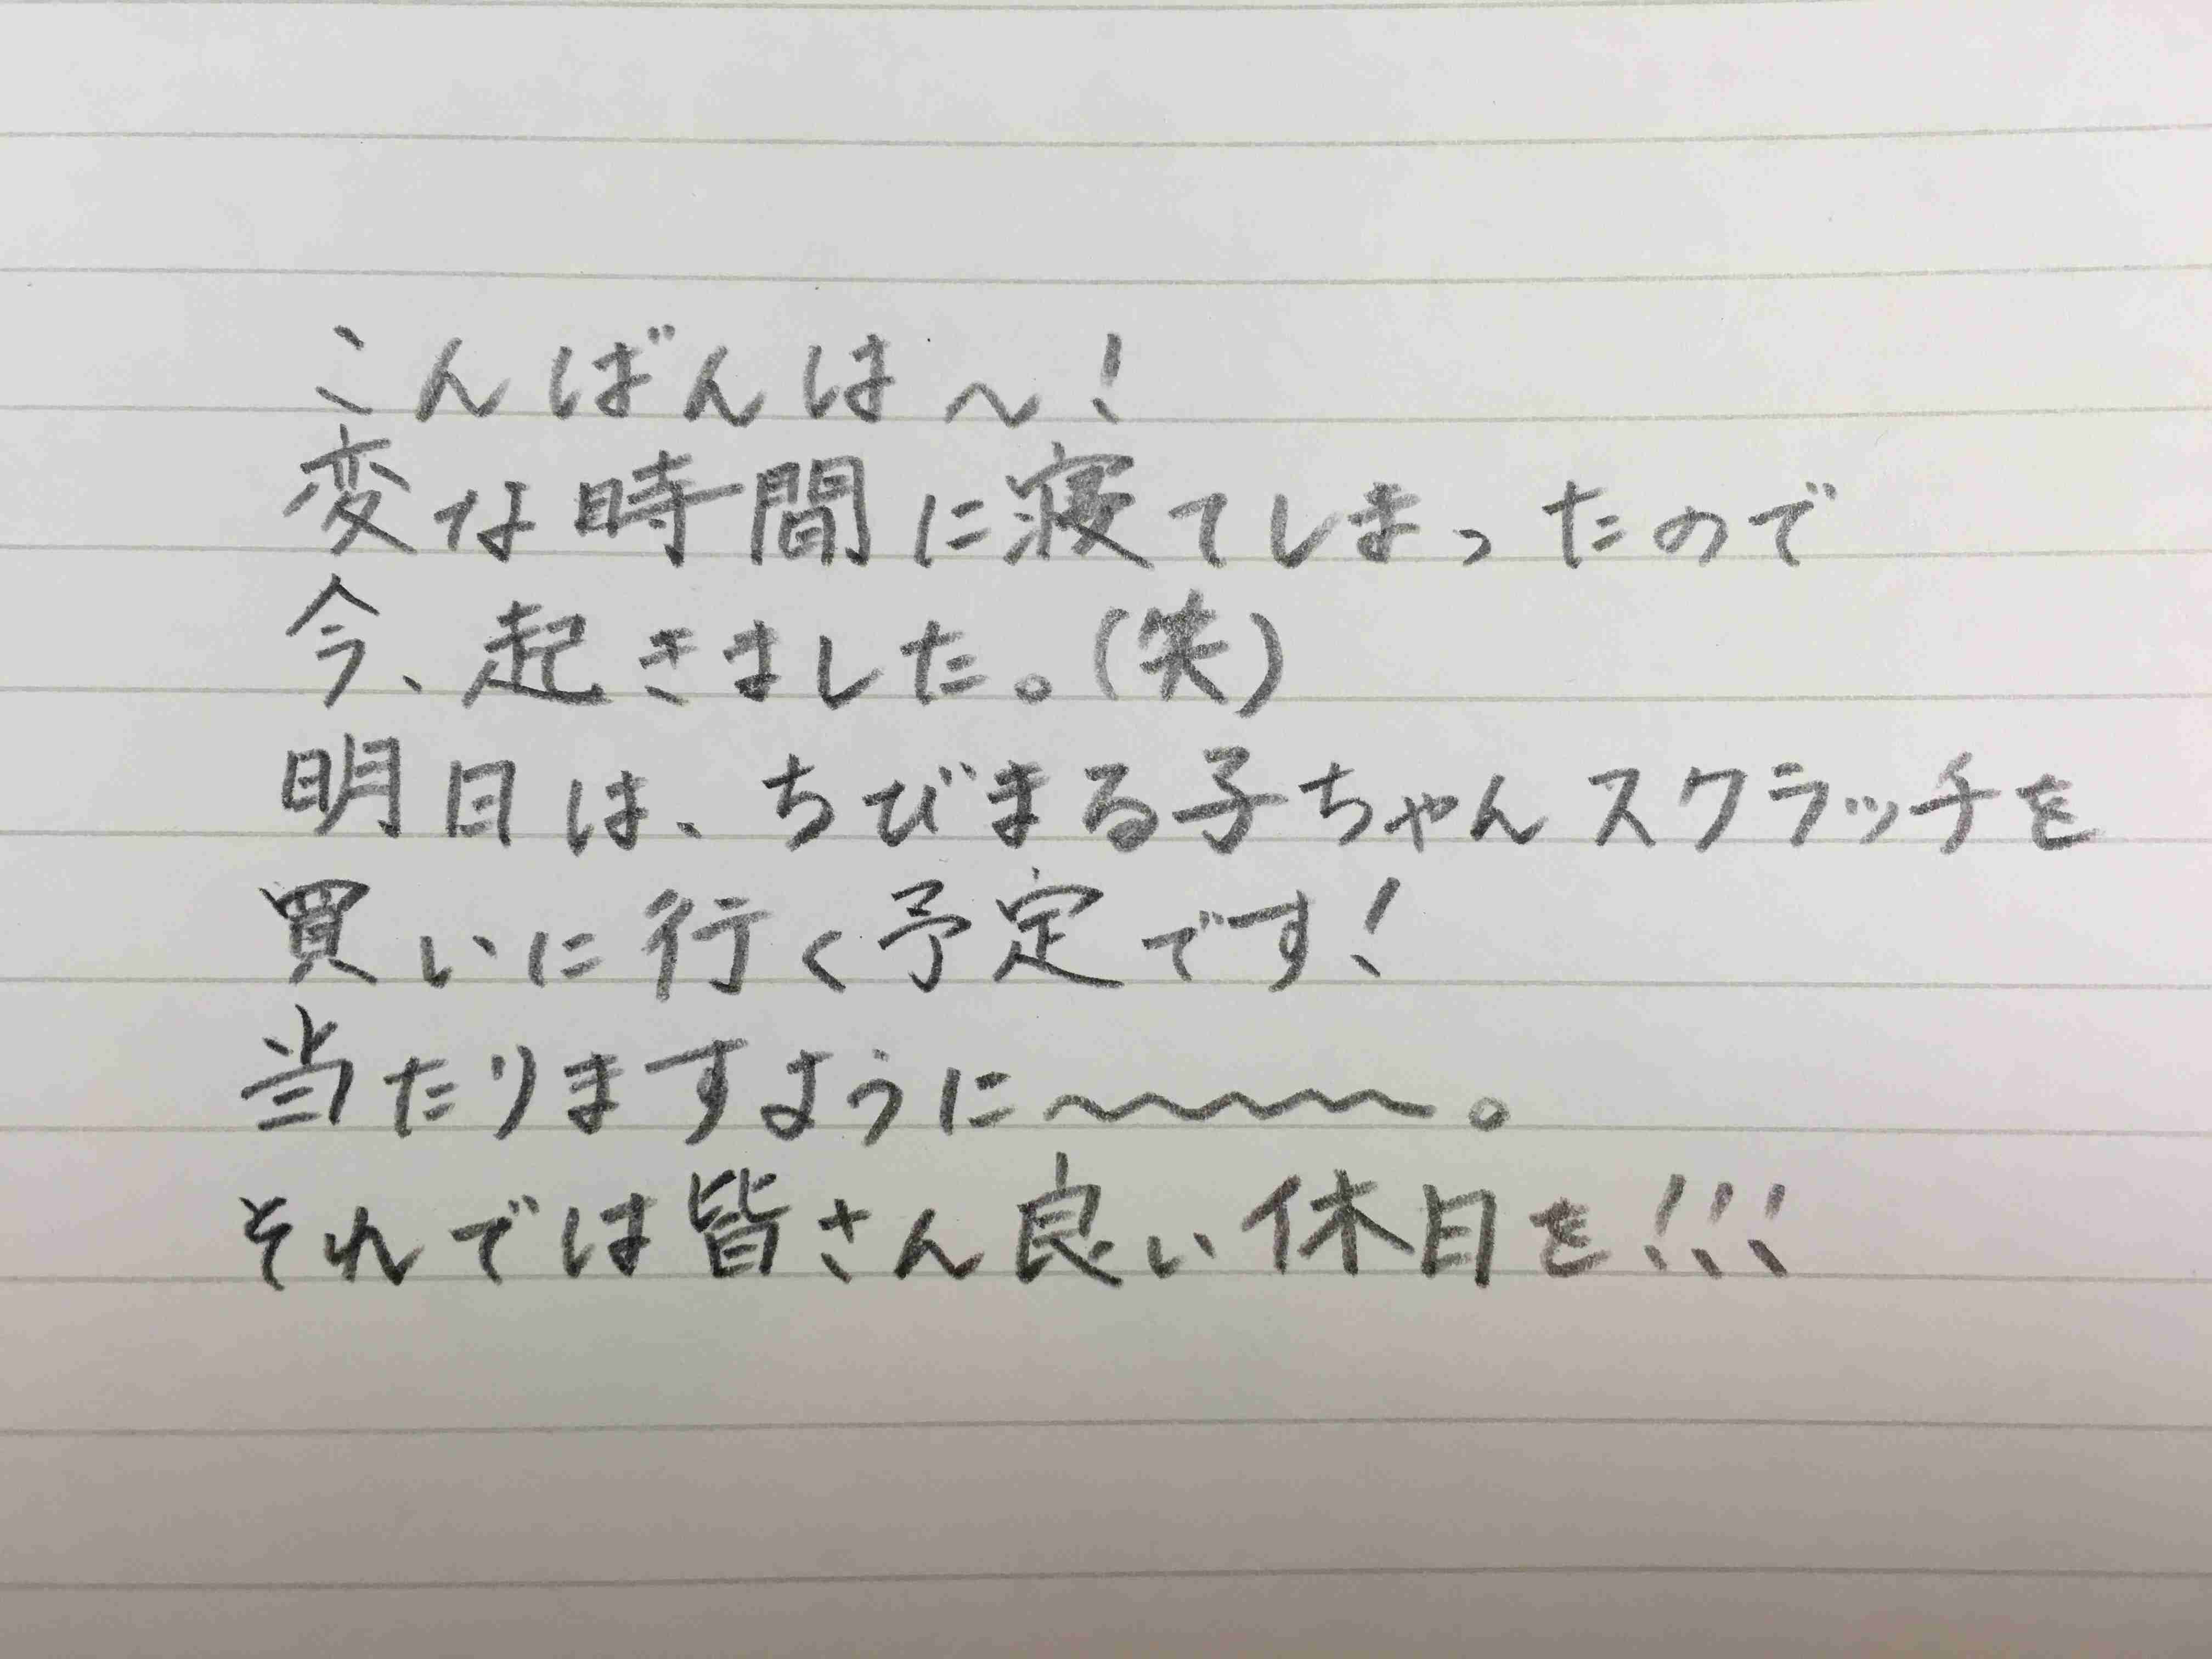 こんばんは〜!
変な時間に寝てしまったので
今、起きました。(笑)
明日は、ちびまる子ちゃんスクラッチを
買いに行く予定です!
当たりますように〜〜〜〜。
それでは皆さん良い休日を!!!